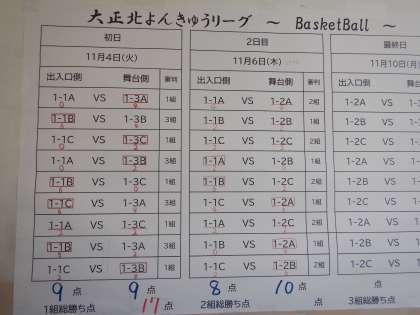 大正北よんきゅうリーグ ～ BasketBall ～
初日 2日目 最終日
11月4日(火) 11月6日(木) 11月10日(月)
出入口側 舞台側 審判 出入口側 舞台側 審判 出入口側
1-1A VS 1-3A 1組 1-1A VS 1-2A 2組 1-2A VS
1-1B VS 1-3B 3組 1-1B VS 1-2B 1組 1-2B VS
1-1C VS 1-3C 1組 1-1C VS 1-2C 2組 1-2C VS
1-1A VS 1-3B 3組 1-1A VS 1-2B 1組 1-2A VS
1-1B VS 1-3C 1組 1-1B VS 1-2C 2組 1-2B VS
1-1C VS 1-3A 3組 1-1C VS 1-2A 1組 1-2C VS
1-1A VS 1-3C 1組 1-1A VS 1-2C 2組 1-2A VS
1-1B VS 1-3A 3組 1-1B VS 1-2A 1組 1-2B VS
1-1C VS 1-3B 1組 1-1C VS 1-2B 2組 1-2C VS
9点 9点 8点 10点 点
1組総勝ち点 17点 2組総勝ち点 点 3組総勝ち点